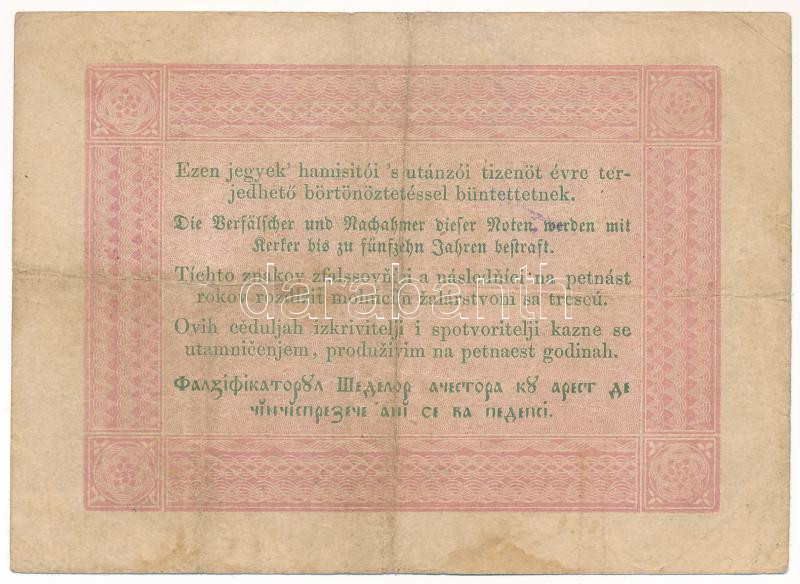 Ezen jegyek' hamisitói 's utánzói tizenöt évre ter-
jedhető börtönöztetéssel büntettetnek.
Die Verfälscher und Nachahmer dieser Noten werden mit
Kerker bis zu fünfzehn Jahren bestraft.
Tíchto znakov zfalssovňíci a následňíci na petnást
rokov rozdlžit mohúcím žalárstvom sa trescú.
darabanth
Ovih céduljah izkrivitelji i spotvoritelji kazne se
utamničenjem, produživim na petnaest godinah.
Фалзіфікаторꙋл Шеделор ачестора кꙋ арест де
чінчіспрезече ані се ва педепсі.